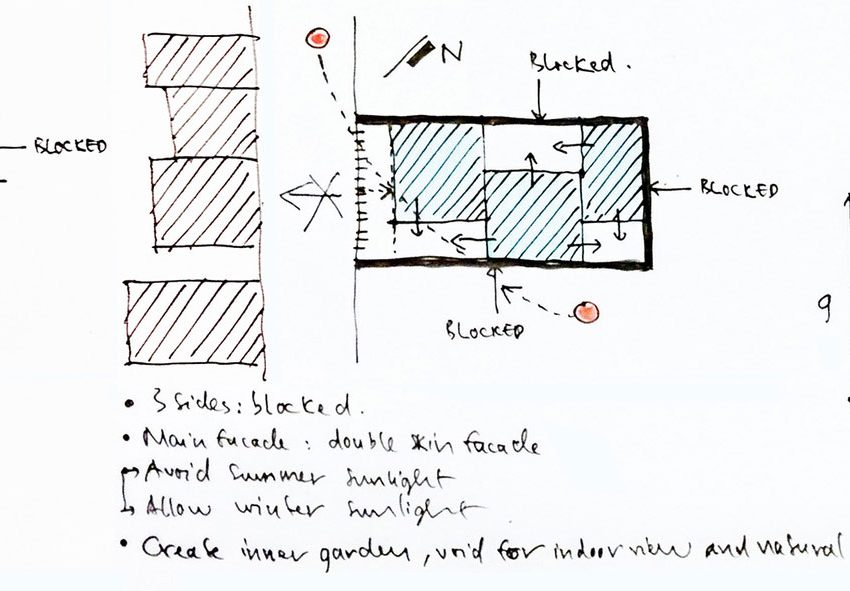 N
Blocked.
BLOCKED
BLOCKED
BLOCKED
9
• 3 sides: blocked.
• Main facade: double skin facade
Avoid summer sunlight
Allow winter sunlight
• Create inner garden, void for indoor view and natural